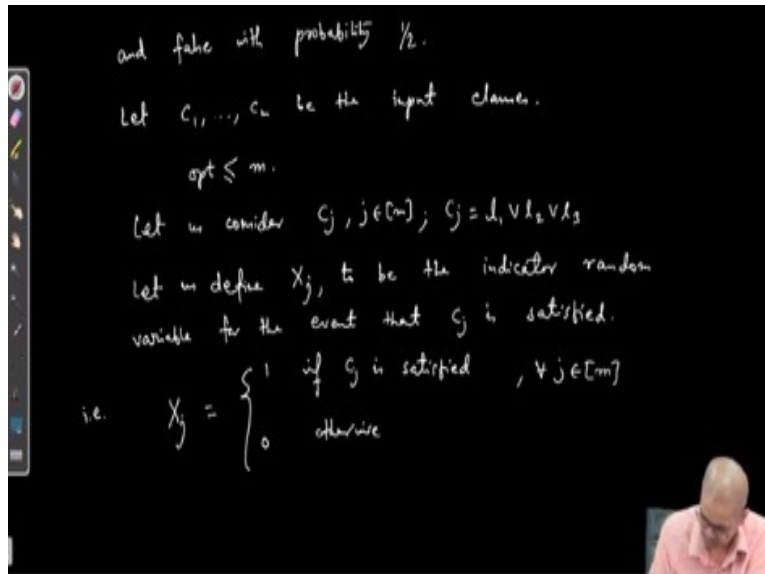 and false with probability 1/2.
Let C₁, ..., Cₘ be the input clauses.
opt ≤ m.
Let us consider Cj, j ∈ [m]; Cj = l₁ ∨ l₂ ∨ l₃
Let us define Xj, to be the indicator random
variable for the event that Cj is satisfied.
i.e. Xj = { 1 if Cj is satisfied , ∀ j ∈ [m]
0 otherwise